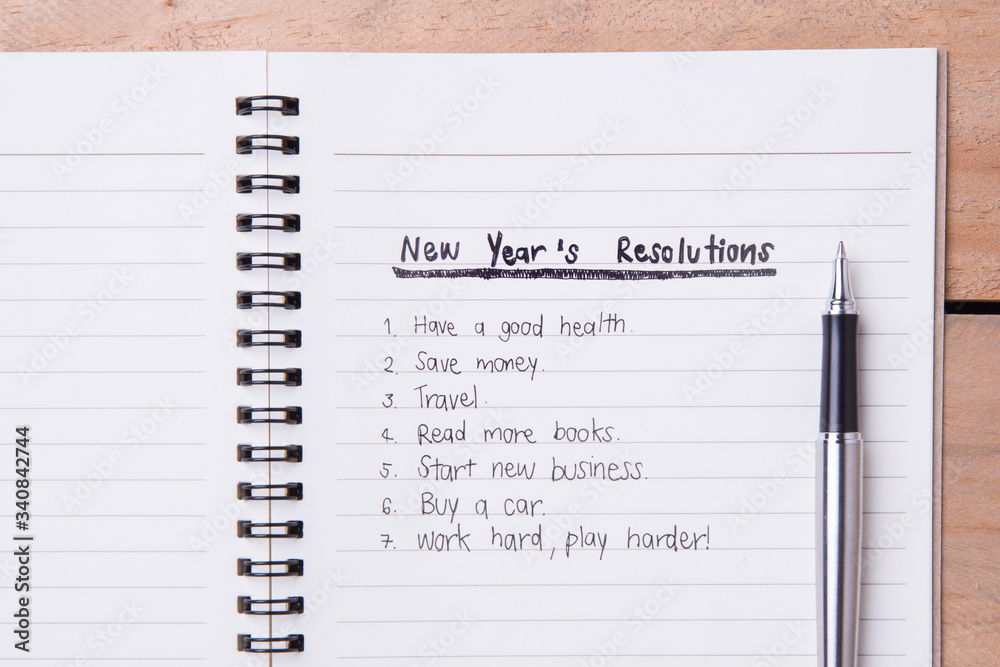 New Year's Resolutions
1. Have a good health.
2. Save money.
3. Travel.
4. Read more books.
5. Start new business.
6. Buy a car.
7. Work hard, play harder!
Adobe Stock | #340842744